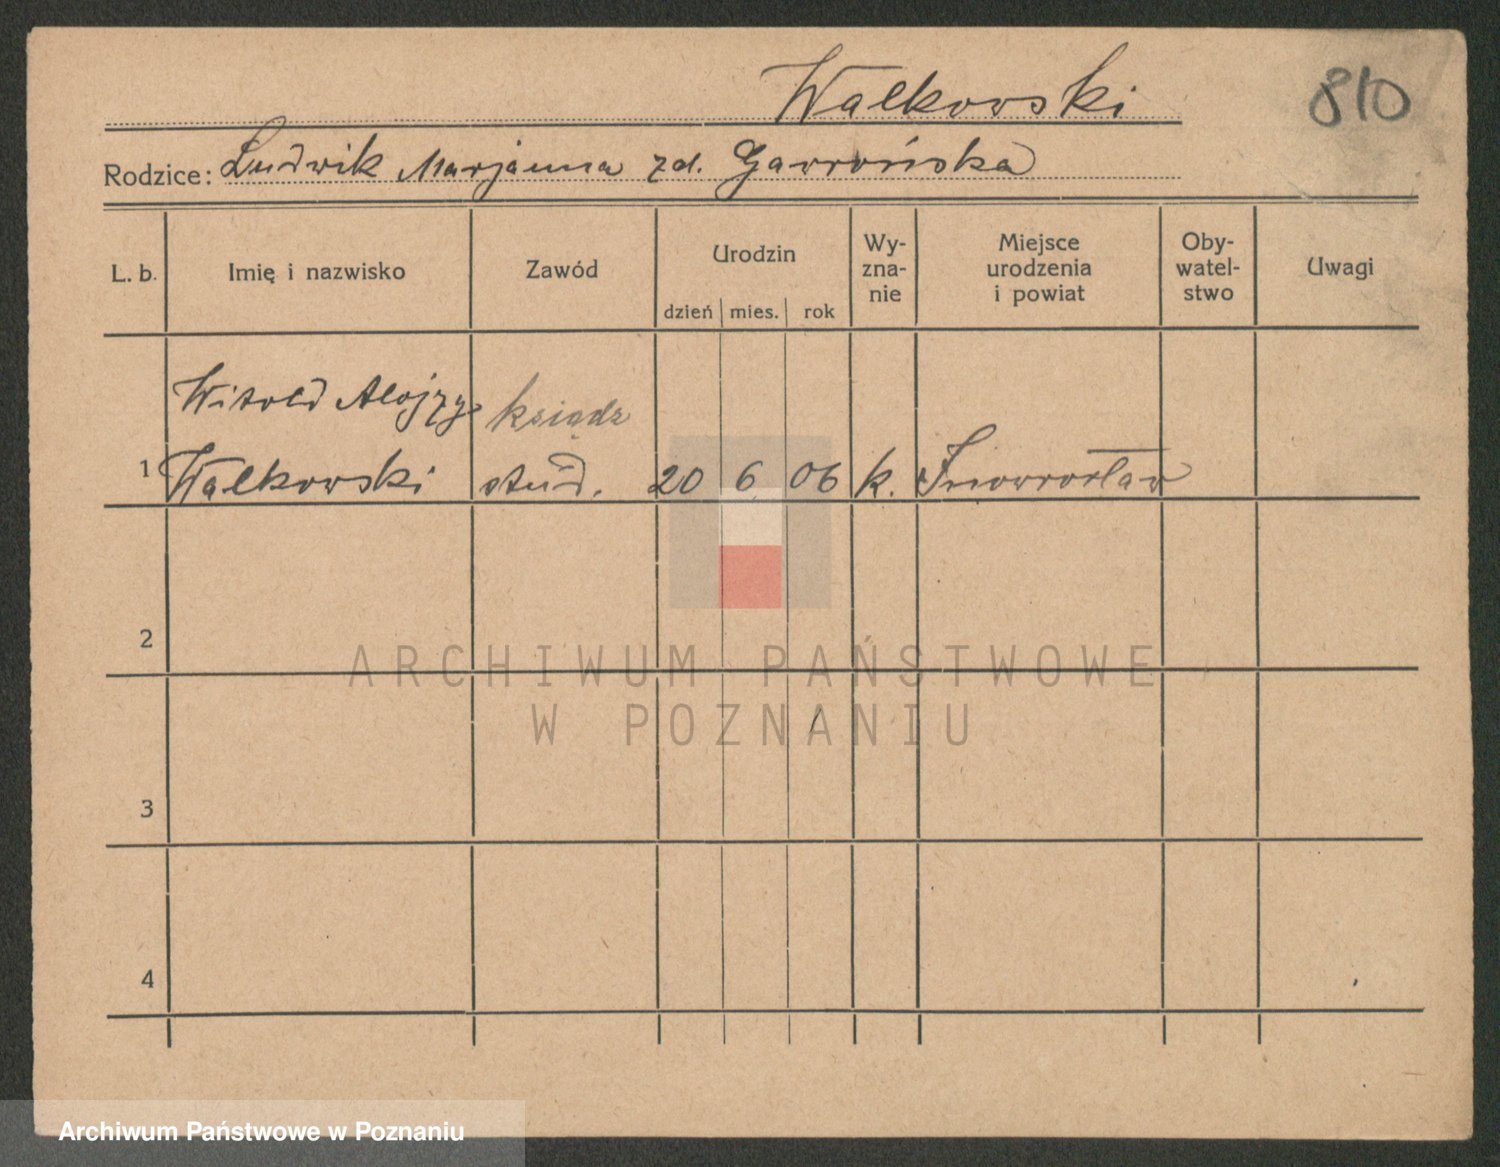 Walkowski
810
Rodzice: Ludwik Marjanna zd. Gawrońska
L. b. Imię i nazwisko Zawód Urodzin Wy-zna-nie Miejsce urodzenia i powiat Oby-watel-stwo Uwagi
dzień mies. rok
Witold Alojzy ksiądz
1 Walkowski stud. 20 6 06 k. Inowrocław
2
ARCHIWUM PAŃSTWOWE
W POZNANIU
3
4
Archiwum Państwowe w Poznaniu